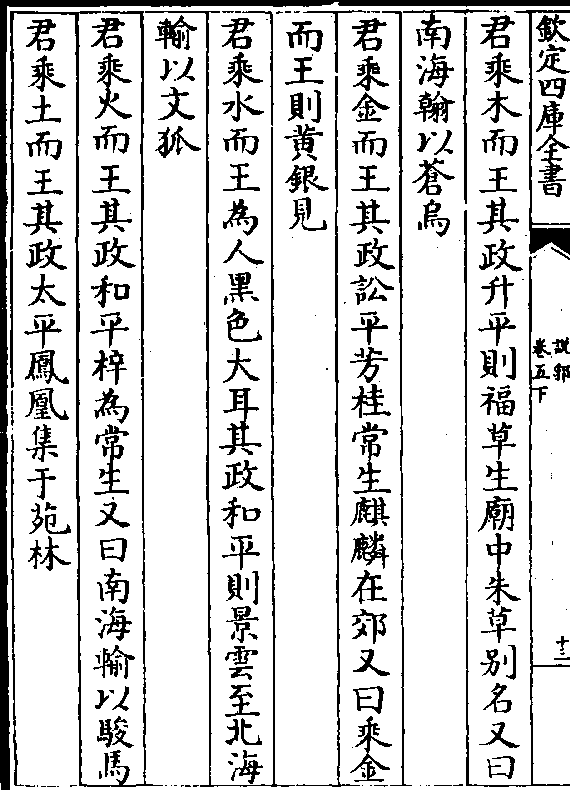 欽定四庫全書
說郛
卷五下
十三
君乘木而王其政升平則福草生廟中朱草別名又曰
南海翰以蒼烏
君乘金而王其政訟平芳桂常生麒麟在郊又曰乘金
而王則黄銀見
君乘水而王為人黑色大耳其政和平則景雲至北海
輸以文狐
君乘火而王其政和平梓為常生又曰南海輸以駿馬
君乘土而王其政太平鳳凰集于苑林